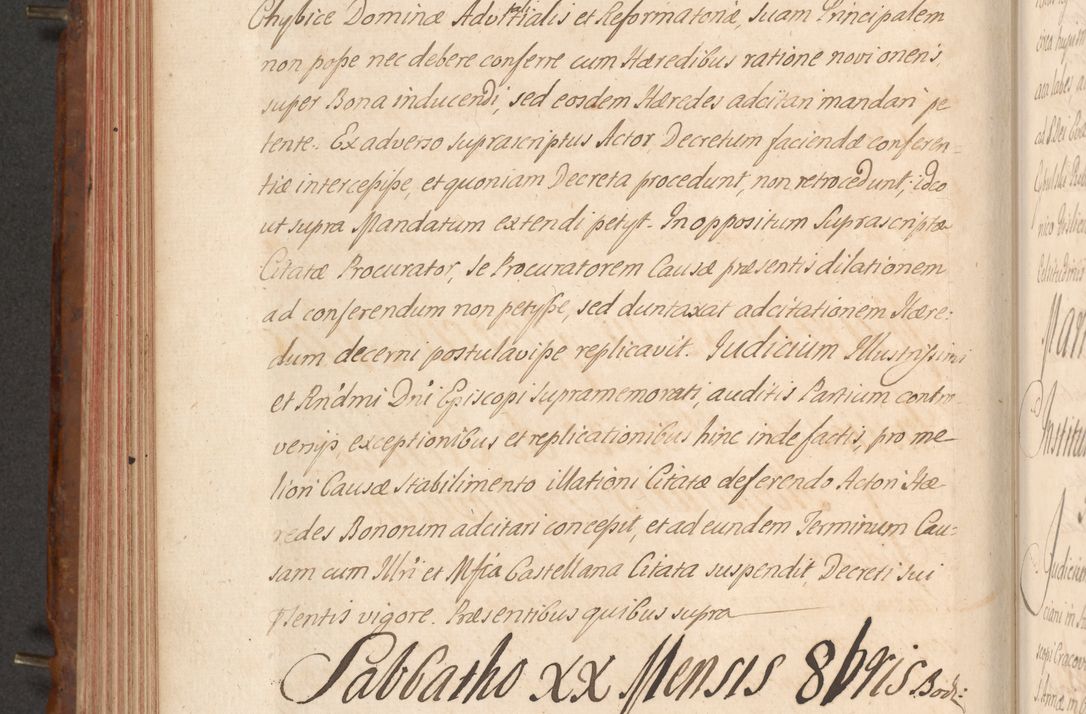 Chybice Dominæ Advitalis et Reformatoriæ, suam Principalem
non poße nec debere conferre cum Hæredibus ratione novi oneris
super Bona inducendi, sed eosdem Hæredes adcitari mandari pe
tente. Ex adverso suprascriptus Actor, Decretum faciendæ conferen=
tiæ intercepiße, et quoniam Decreta procedunt, non retrocedunt, ideo
ut supra Mandatum extendi petyt. In oppositum Suprascriptæ
Citatæ Procurator, se Procuratorem Causæ præsentis dilationem
ad conferendum non petyße, sed duntaxat adcitationem Hære:
dum decerni postulaviße replicavit. Judicium Illustrißimi
et Rndmi Dni Episcopi supramemorati, auditis Partium contro
versijs, exceptionibus et replicationibus hinc inde factis, pro me
liori Causæ stabilimento illationi Citatæ deferendo Actori Hæ
redes Bonorum adcitari conceßit, et ad eundem Terminum Cau=
sam cum Mfca Castellana Citata suspendit Decreti sui
Psentis vigore. Præsentibus quibus supra
Sabbatho XX Mensis 8bris
Judicium